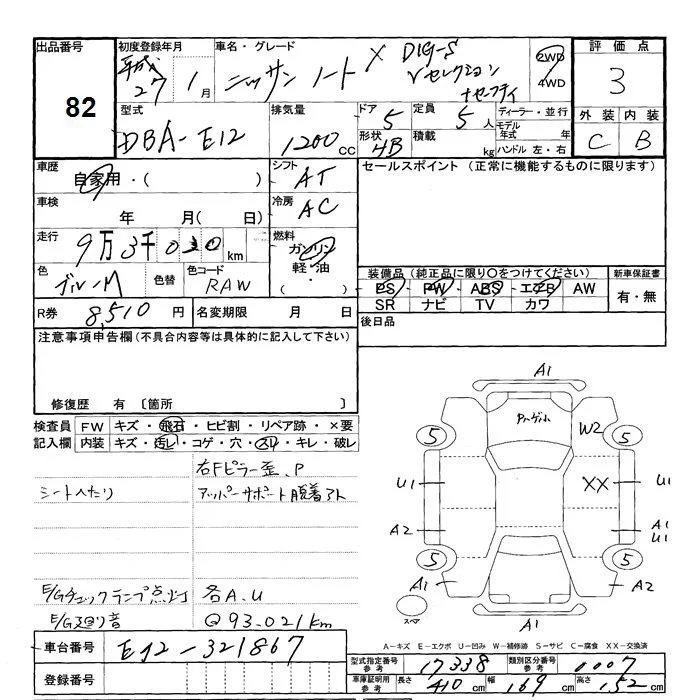 出品番号 82
初度登録年月 平成27年1月
車名・グレード ニッサン ノート X DIG-S
Vセレクション+セーフティ
2WD
4WD
評価点 3
外装 C 内装 B
型式 DBA-E12
排気量 1200 CC
ドア 5 形状 4B
定員 5人
積載 kg
ディーラー・並行
モデル年式 年
ハンドル 左・右
車歴 自家用・( )
シフト AT
セールスポイント (正常に機能するものに限ります)
車検 年 月( 日)
冷房 AC
走行 9万3千0 km
燃料 ガソリン
軽・油
・( )
色 ブルーM 色替 色コード RAW
装備品 (純正品に限り〇をつけてください)
PS PW ABS エアB AW
SR ナビ TV カワ
新車保証書
有・無
R券 8,510 円 名変期限 月 日
後日品
注意事項申告欄 (不具合内容等は具体的に記入して下さい)
修復歴 有 〔箇所 〕
検査員 FW キズ・飛石・ヒビ割・リペア跡・×要
記入欄 内装 キズ・汚レ・コゲ・穴・スレ・キレ・破レ
右Fピラー歪、P
シートヘたり アッパーサポート脱着アト
E/Gチェックランプ点灯 各A.U
E/G廻り音 @93.021km
車台番号 E12-321867
登録番号
A1
W2
5 5
U1 XX U1
A2 A1
U1
5 5
A1 A2
スペア A1
A-キズ E-エクボ U-凹み W-補修跡 S-サビ C-腐食 XX-交換済
型式指定番号 参考 17338 類別区分番号 参考 0007
車庫証明用 参考 長さ 410 cm 幅 169 cm 高さ 152 cm